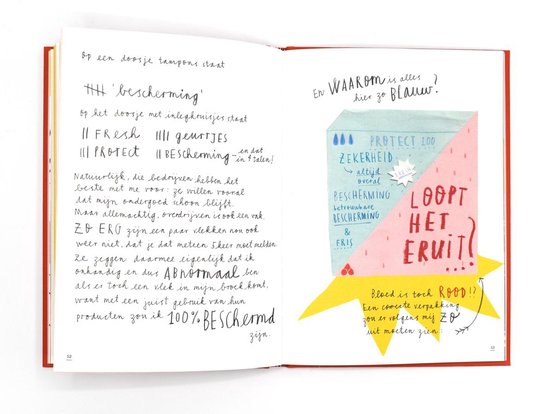 Op een doosje tampons staat
'bescherming'
op het doosje met inlegkruisjes staat
FRESH
geurtjes
PROTECT
BESCHERMING en dat in 4 talen!
Natuurlijk, die bedrijven hebben het
beste met me voor: ze willen vooral
dat mijn ondergoed schoon blijft.
Maar allemachtig, overdrijven is ook een vak.
ZO ERG zijn een paar vlekken nou ook
weer niet, dat je dat meteen 5 keer moet melden.
Ze zeggen daarmee eigenlijk dat ik
onhandig en dus ABNORMAAL ben
als er toch een vlek in mijn broek komt,
want met een juist gebruik van hun
producten zou ik 100% BESCHERMD
zijn.
52
En WAAROM is alles
hier zo BLAUW?
PROTECT 100
ZEKERHEID
altijd
overal
BESCHERMING
betrouwbare
BESCHERMING
&
FRIS
LOOPT
HET
ERUIT...?
Bloed is toch ROOD!!
Een correcte verpakking
zou er volgens mij ZO
uit moeten zien.
53